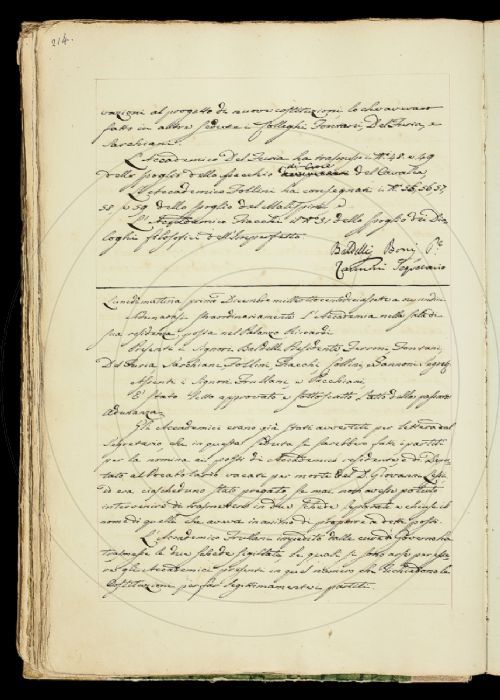 214.
vazioni al progetto di nuove costituzioni lo che avevano
fatto in altre sedute i Colleghi Ferroni, Del Furia, e
Sarchiani.
L'Accademico Del Furia ha trasmessi i N.i 48. e 49
dello spoglio dello Specchio di Croce del Cavalca,
L'Accademico Follini ha consegnati i N.i 55. 56. 57.
58. e 59. dello spoglio del
L'Accademico Fiacchi il N.o 31. dello spoglio dei Dia-
loghi filosofici dell'Imperfetto.
Baldelli Boni P.e
Zannoni Segretario
Lunedì mattina primo Dicembre mille otto cento diciassette a ore undici
Adunavasi straordinariamente l'Accademia nella sala di
sua residenza posta nel Palazzo Riccardi.
Presenti i Signori Baldelli Presidente, Ferroni, Fontani,
Del Furia, Sarchiani, Follini, Fiacchi, Collini, e Zannoni Segret.
Assenti i Signori Frullani, e Pecchiani.
È stato letto approvato e sottoscritto l'atto della passata
Adunanza.
Gli Accademici erano già stati avvertiti per lettera dal
Segretario che in questa seduta si sarebbero fatti i partiti
per la nomina ai posti di Accademico residente e di Depu-
tato al vacati per morte del D. Giovanni Lessi
ed era ciascheduno stato pregato, se mai non avesse potuto
intervenire di trasmettere in due schede separate e chiuse il
nome di quelli che aveva in animo di proporre a detti posti.
L'Accademico Frullani impedito dalle cure di Governo ha
trasmesse le due schede sigillate le quali si sono
gli Accademici presenti in quel numero che richiedono le
Costituzioni per far legittimamente i partiti.